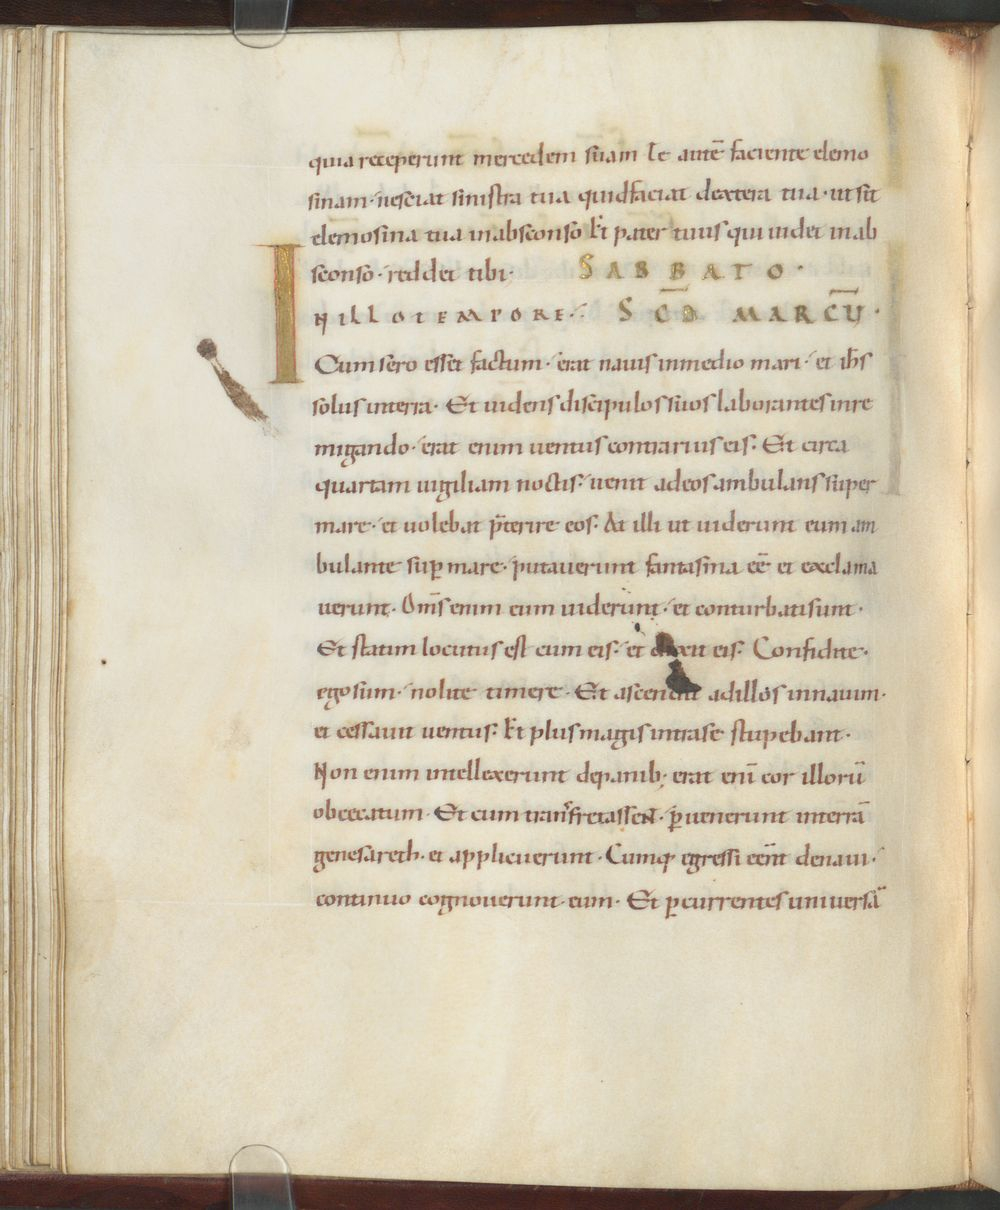 quia receperunt mercedem suam Te autē faciente elemo
sinam · nesciat sinistra tua quid faciat dextera tua · ut sit
elemosina tua in absconso Et pater tuus qui uidet in ab
sconso · reddet tibi · SABBATO ·
IN ILLO TEMPORE · SCD̄ MARCŪ ·
Cum sero esset factum · erat nauis in medio mari · et ih̄s
solus in terra · Et uidens discipulos suos laborantes in re
migando · erat enim uentus contrarius eis : Et circa
quartam uigiliam noctis : uenit ad eos ambulans super
mare · et uolebat p̄terire eos : At illi ut uiderunt eum am
bulante sup mare · putauerunt fantasma eē et exclama
uerunt · Om̄s enim eum uiderunt · et conturbati sunt ·
Et statim locutus est cum eis : et dixit eis : Confidite ·
ego sum · nolite timere · Et ascendit ad illos in nauim ·
et cessauit uentus : Et plus magis intra se stupebant ·
Non enim intellexerunt de panib; erat eni̅ cor illorū
obcecatum · Et cum transfretassent · puenerunt in terrā
genesareth · et applicuerunt · Cumq; egressi eēnt de naui ·
continuo cognouerunt eum · Et pcurrentes uniuersā